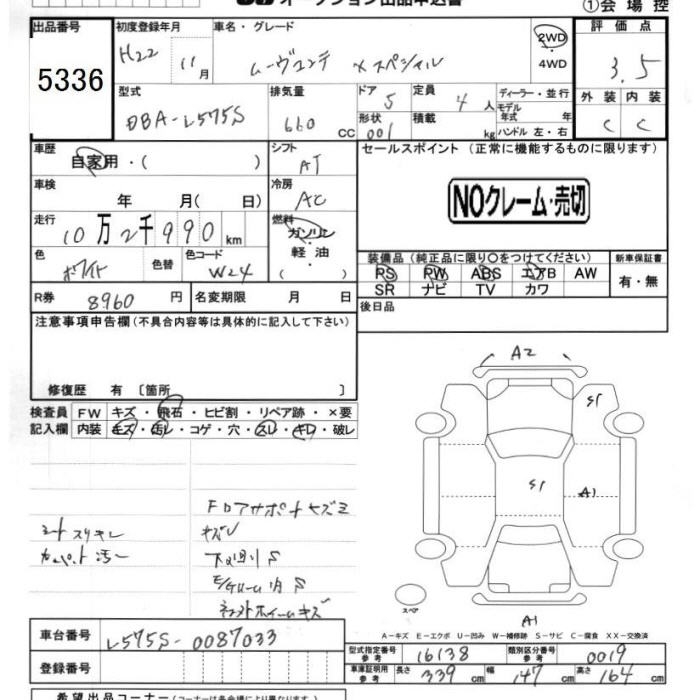 オークション出品申込書
①会場控
出品番号
5336
初度登録年月
H22 11月
車名・グレード
ムーヴコンテ Xスペシャル
2WD
・4WD
評価点
3.5
型式
DBA-L575S
排気量
660 cc
ドア
5
定員
4人
形状
001
積載
kg
ディーラー・並行
モデル年式 年
ハンドル 左・右
外装 内装
C C
車歴
自家用・( )
シフト
AT
車検
年 月(日)
冷房
AC
走行
10万2千990km
燃料
ガソリン
・軽油
( )
色
ホワイト
色替
色コード
W24
R券
8960円
名変期限 月 日
セールスポイント(正常に機能するものに限ります)
NOクレーム・売切
装備品(純正品に限り○をつけてください)
PS PW ABS エアB AW
SR ナビ TV カワ
新車保証書
有・無
後日品
注意事項申告欄(不具合内容等は具体的に記入して下さい)
修復歴 有 〔箇所 〕
検査員
記入欄
FW キズ・飛石・ヒビ割・リペア跡・×要
内装 キズ・汚レ・コゲ・穴・スレ・キレ・破レ
シートスリキレ
カーペット汚レ
キズレ
下廻りS
A2
S1
S1
A1
A1
スペア
A-キズ E-エクボ U-凹み W-補修跡 S-サビ C-腐食 XX-交換済
車台番号
L575S-0087033
登録番号
型式指定番号
参考
16138
類別区分番号
参考
0019
車庫証明用
参考
長さ 339cm 幅 147cm 高さ 164cm
希望出品コーナー